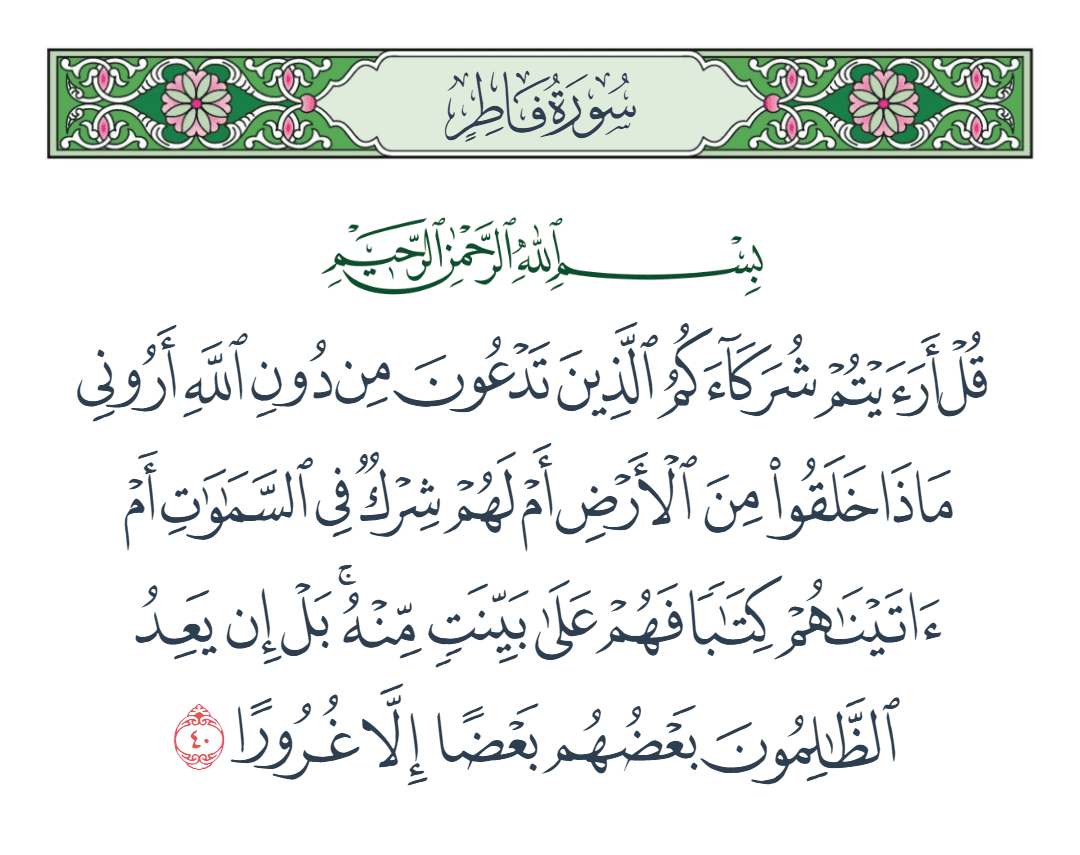 سُورَةُ فَاطِرٍ
بِسْمِ ٱللَّهِ ٱلرَّحْمَٰنِ ٱلرَّحِيمِ
قُلْ أَرَءَيْتُمْ شُرَكَآءَكُمُ ٱلَّذِينَ تَدْعُونَ مِن دُونِ ٱللَّهِ أَرُونِى
مَاذَا خَلَقُوا۟ مِنَ ٱلْأَرْضِ أَمْ لَهُمْ شِرْكٌ فِى ٱلسَّمَٰوَٰتِ أَمْ
ءَاتَيْنَٰهُمْ كِتَٰبًا فَهُمْ عَلَىٰ بَيِّنَتٍ مِّنْهُ ۚ بَلْ إِن يَعِدُ
ٱلظَّٰلِمُونَ بَعْضُهُم بَعْضًا إِلَّا غُرُورًا ٤٠